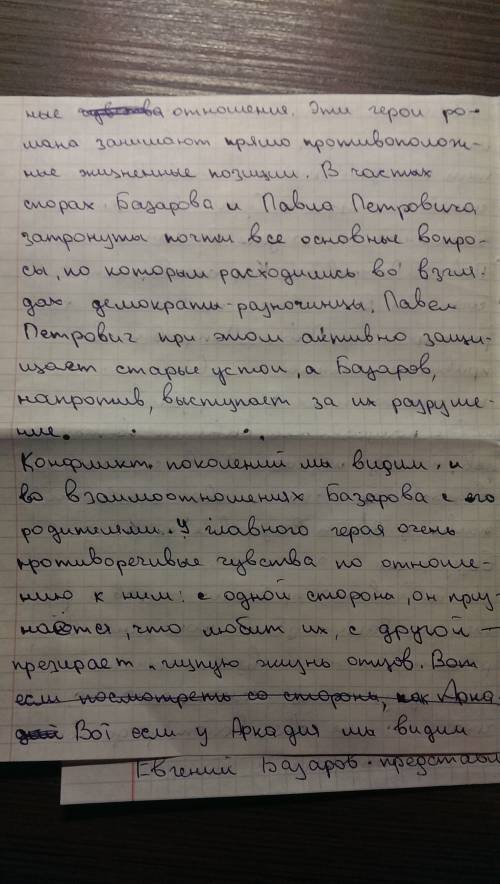 ные чувства отношение. Эти герои ро-
мана занимают прямо противополож-
ные жизненные позиции. В частых
спорах Базарова и Павла Петровича
затронуты почти все основные вопро-
сы, по которым расходились во взгля-
дах демократы-разночинцы. Павел
Петрович при этом активно защи-
щает старые устои, а Базаров,
напротив, выступает за их разруше-
ние.
Конфликт поколений мы видим и
во взаимоотношениях Базарова с его
родителями. У главного героя очень
противоречивые чувства по отноше-
нию к ним: с одной стороны, он приз-
наётся, что любит их, с другой —
презирает "глупую жизнь отцов". Вот
если посмотреть со стороны, как Арка-
дий Вот если у Аркадия мы видим
Евгений Базаров - представи